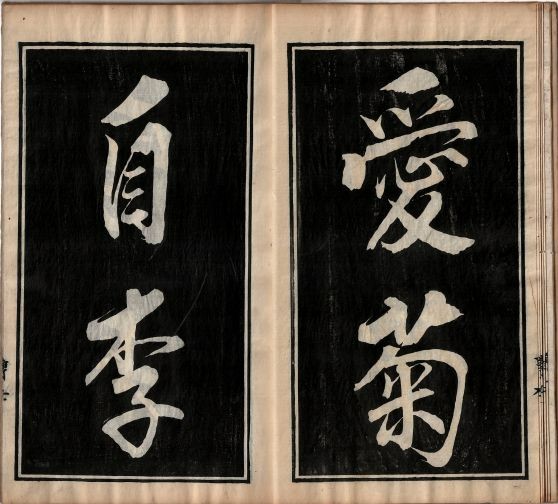 愛菊
自李